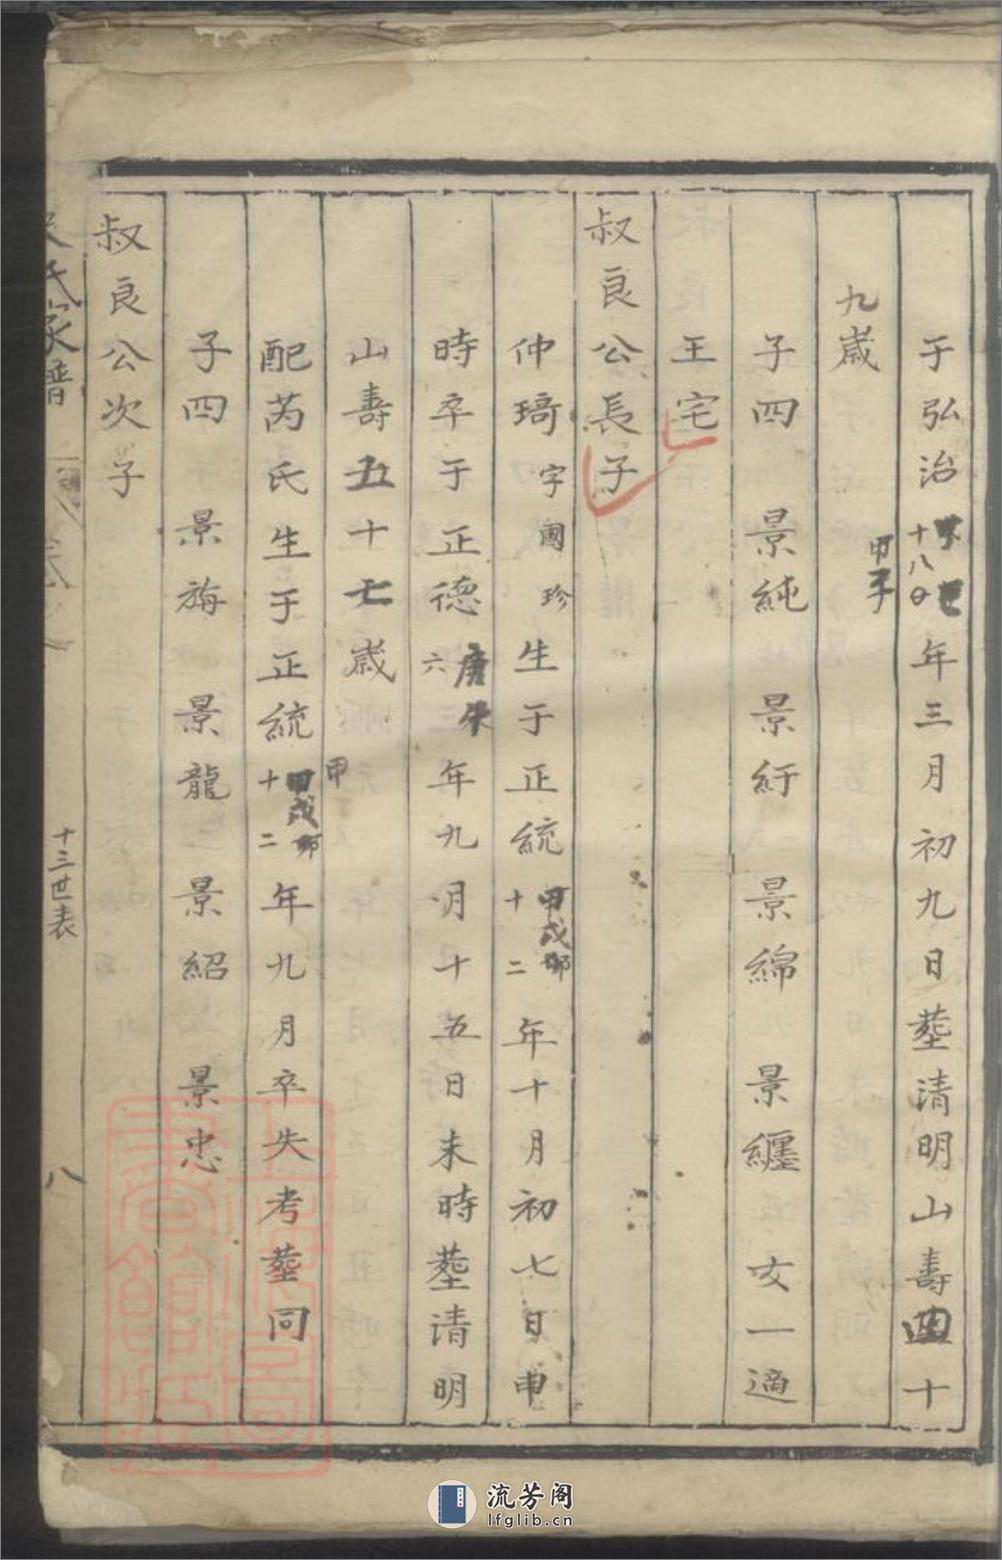 于弘治十八年三月初九日塟清明山壽四十
甲子
九歲
子四 景純 景紆 景綿 景纏 女一適
王宅
叔良公長子
仲琦字國珍生于正統十二年十月初七日申
時卒于正德六年九月十五日未時塟清明
山壽五十七歲
甲
配芮氏生于正統十二年九月卒失考塟同
子四 景斾 景龍 景紹 景忠
叔良公次子
氏家譜
十三世表
八
流芳阁
lfglib.cn